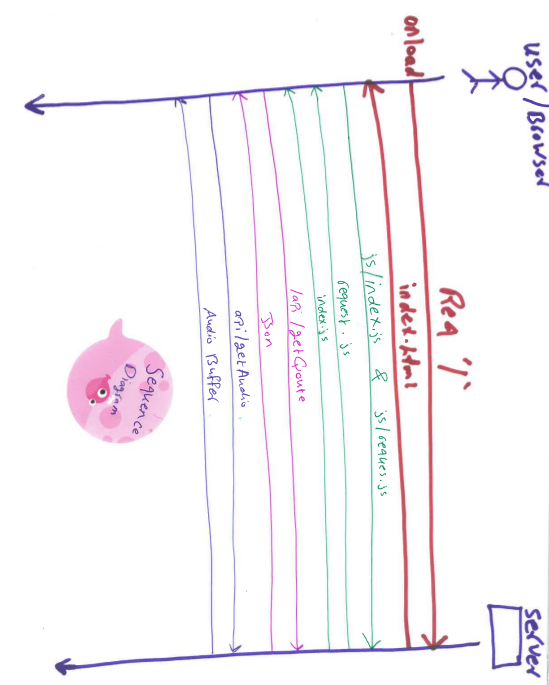 user/Browser
server
onload
Req '/'
index.html
js/index.js & js/reques.js
request.js
index.js
/api/getQoute
Json
api/getAudio.
Audio Buffer
Sequence
Diagram